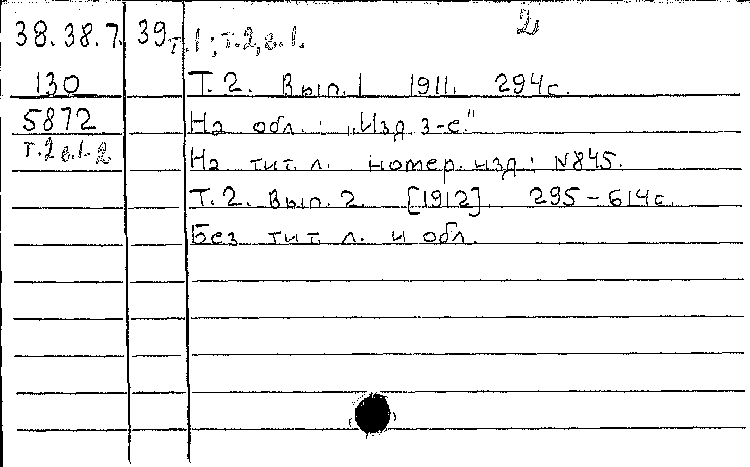 2
38.38.7. 39 т.1; т.2, в.1.
130 Т. 2. Вып. 1 1911. 294 с.
5872 На обл.: „Изд. 3-е."
т.2 в.1-2 На тит. л. номер. изд: №845.
Т. 2. Вып. 2. [1912]. 295 – 614 с.
Без тит. л. и обл.